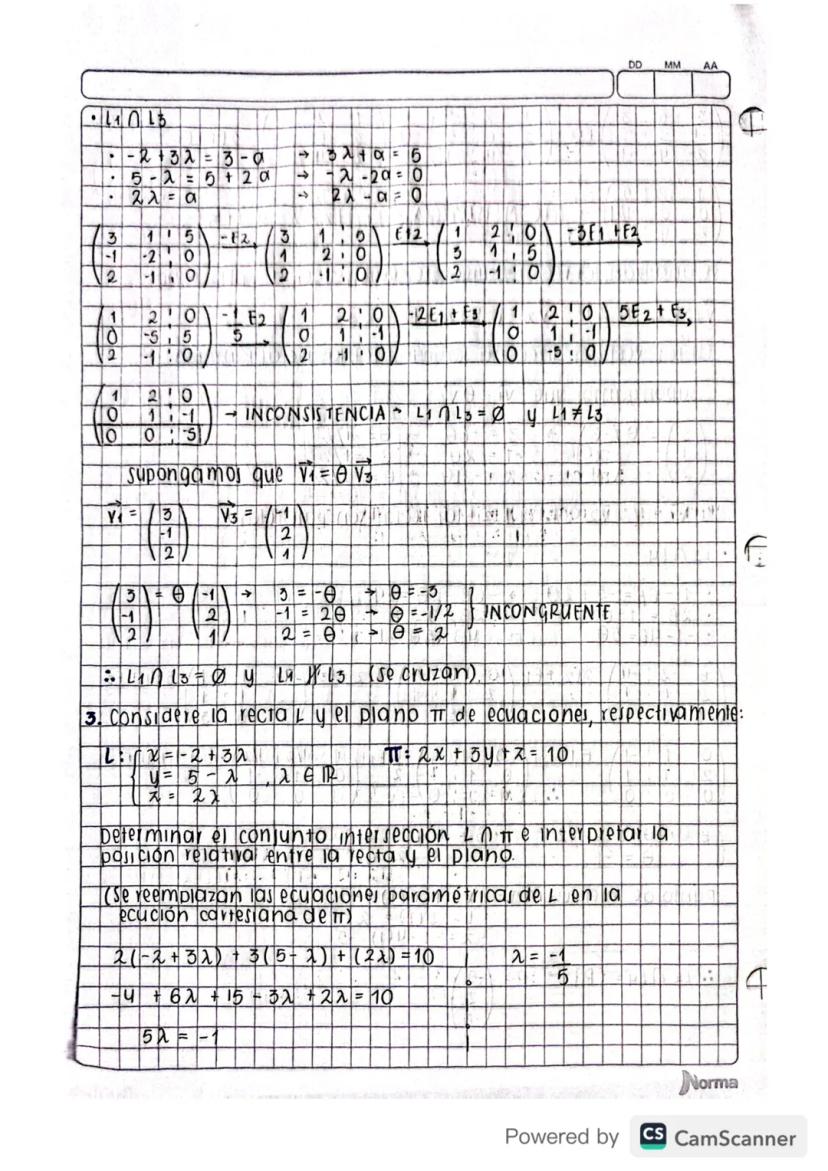 DD MM AA
• L1 ∩ L3
· -2 + 3λ = 3 - a → 3λ + a = 5
· 5 - λ = 5 + 2a → -λ - 2a = 0
· 2λ = a → 2λ - a = 0
( 3 1 ¦ 5 ) -E2 ( 3 1 ¦ 5 ) E12 ( 1 2 ¦ 0 ) -3E1 + E2
( -1 -2 ¦ 0 ) → ( 1 2 ¦ 0 ) → ( 3 1 ¦ 5 ) →
( 2 -1 ¦ 0 ) ( 2 -1 ¦ 0 ) ( 2 -1 ¦ 0 )
( 1 2 ¦ 0 ) -1/5 E2 ( 1 2 ¦ 0 ) -2E1 + E3 ( 1 2 ¦ 0 ) 5E2 + E3
( 0 -5 ¦ 5 ) → ( 0 1 ¦ -1 ) → ( 0 1 ¦ -1 ) →
( 2 -1 ¦ 0 ) ( 2 -1 ¦ 0 ) ( 0 -5 ¦ 0 )
( 1 2 ¦ 0 )
( 0 1 ¦ -1 ) → INCONSISTENCIA → L1 ∩ L3 = Ø y L1 ≠ L3
( 0 0 ¦ -5 )
supongamos que V1 = θ V3
V1 = ( 3 ) V3 = ( -1 )
( -1 ) ( 2 )
( 2 ) ( 1 )
( 3 ) = θ ( -1 ) → 3 = -θ → θ = -3
( -1 ) ( 2 ) -1 = 2θ → θ = -1/2 } INCONGRUENTE
( 2 ) ( 1 ) 2 = θ → θ = 2
∴ L1 ∩ L3 = Ø y L1 ∦ L3 (se cruzan)
3. Considere la recta L y el plano π de ecuaciones, respectivamente:
L: { x = -2 + 3λ π: 2x + 3y + z = 10
y = 5 - λ , λ ∈ ℝ
z = 2λ
Determinar el conjunto intersección L ∩ π e interpretar la
posición relativa entre la recta y el plano.
(se reemplazan las ecuaciones paramétricas de L en la
ecución cartesiana de π)
2(-2 + 3λ) + 3(5 - λ) + (2λ) = 10 λ = -1/5
-4 + 6λ + 15 - 3λ + 2λ = 10
5λ = -1
Norma
Powered by CS CamScanner